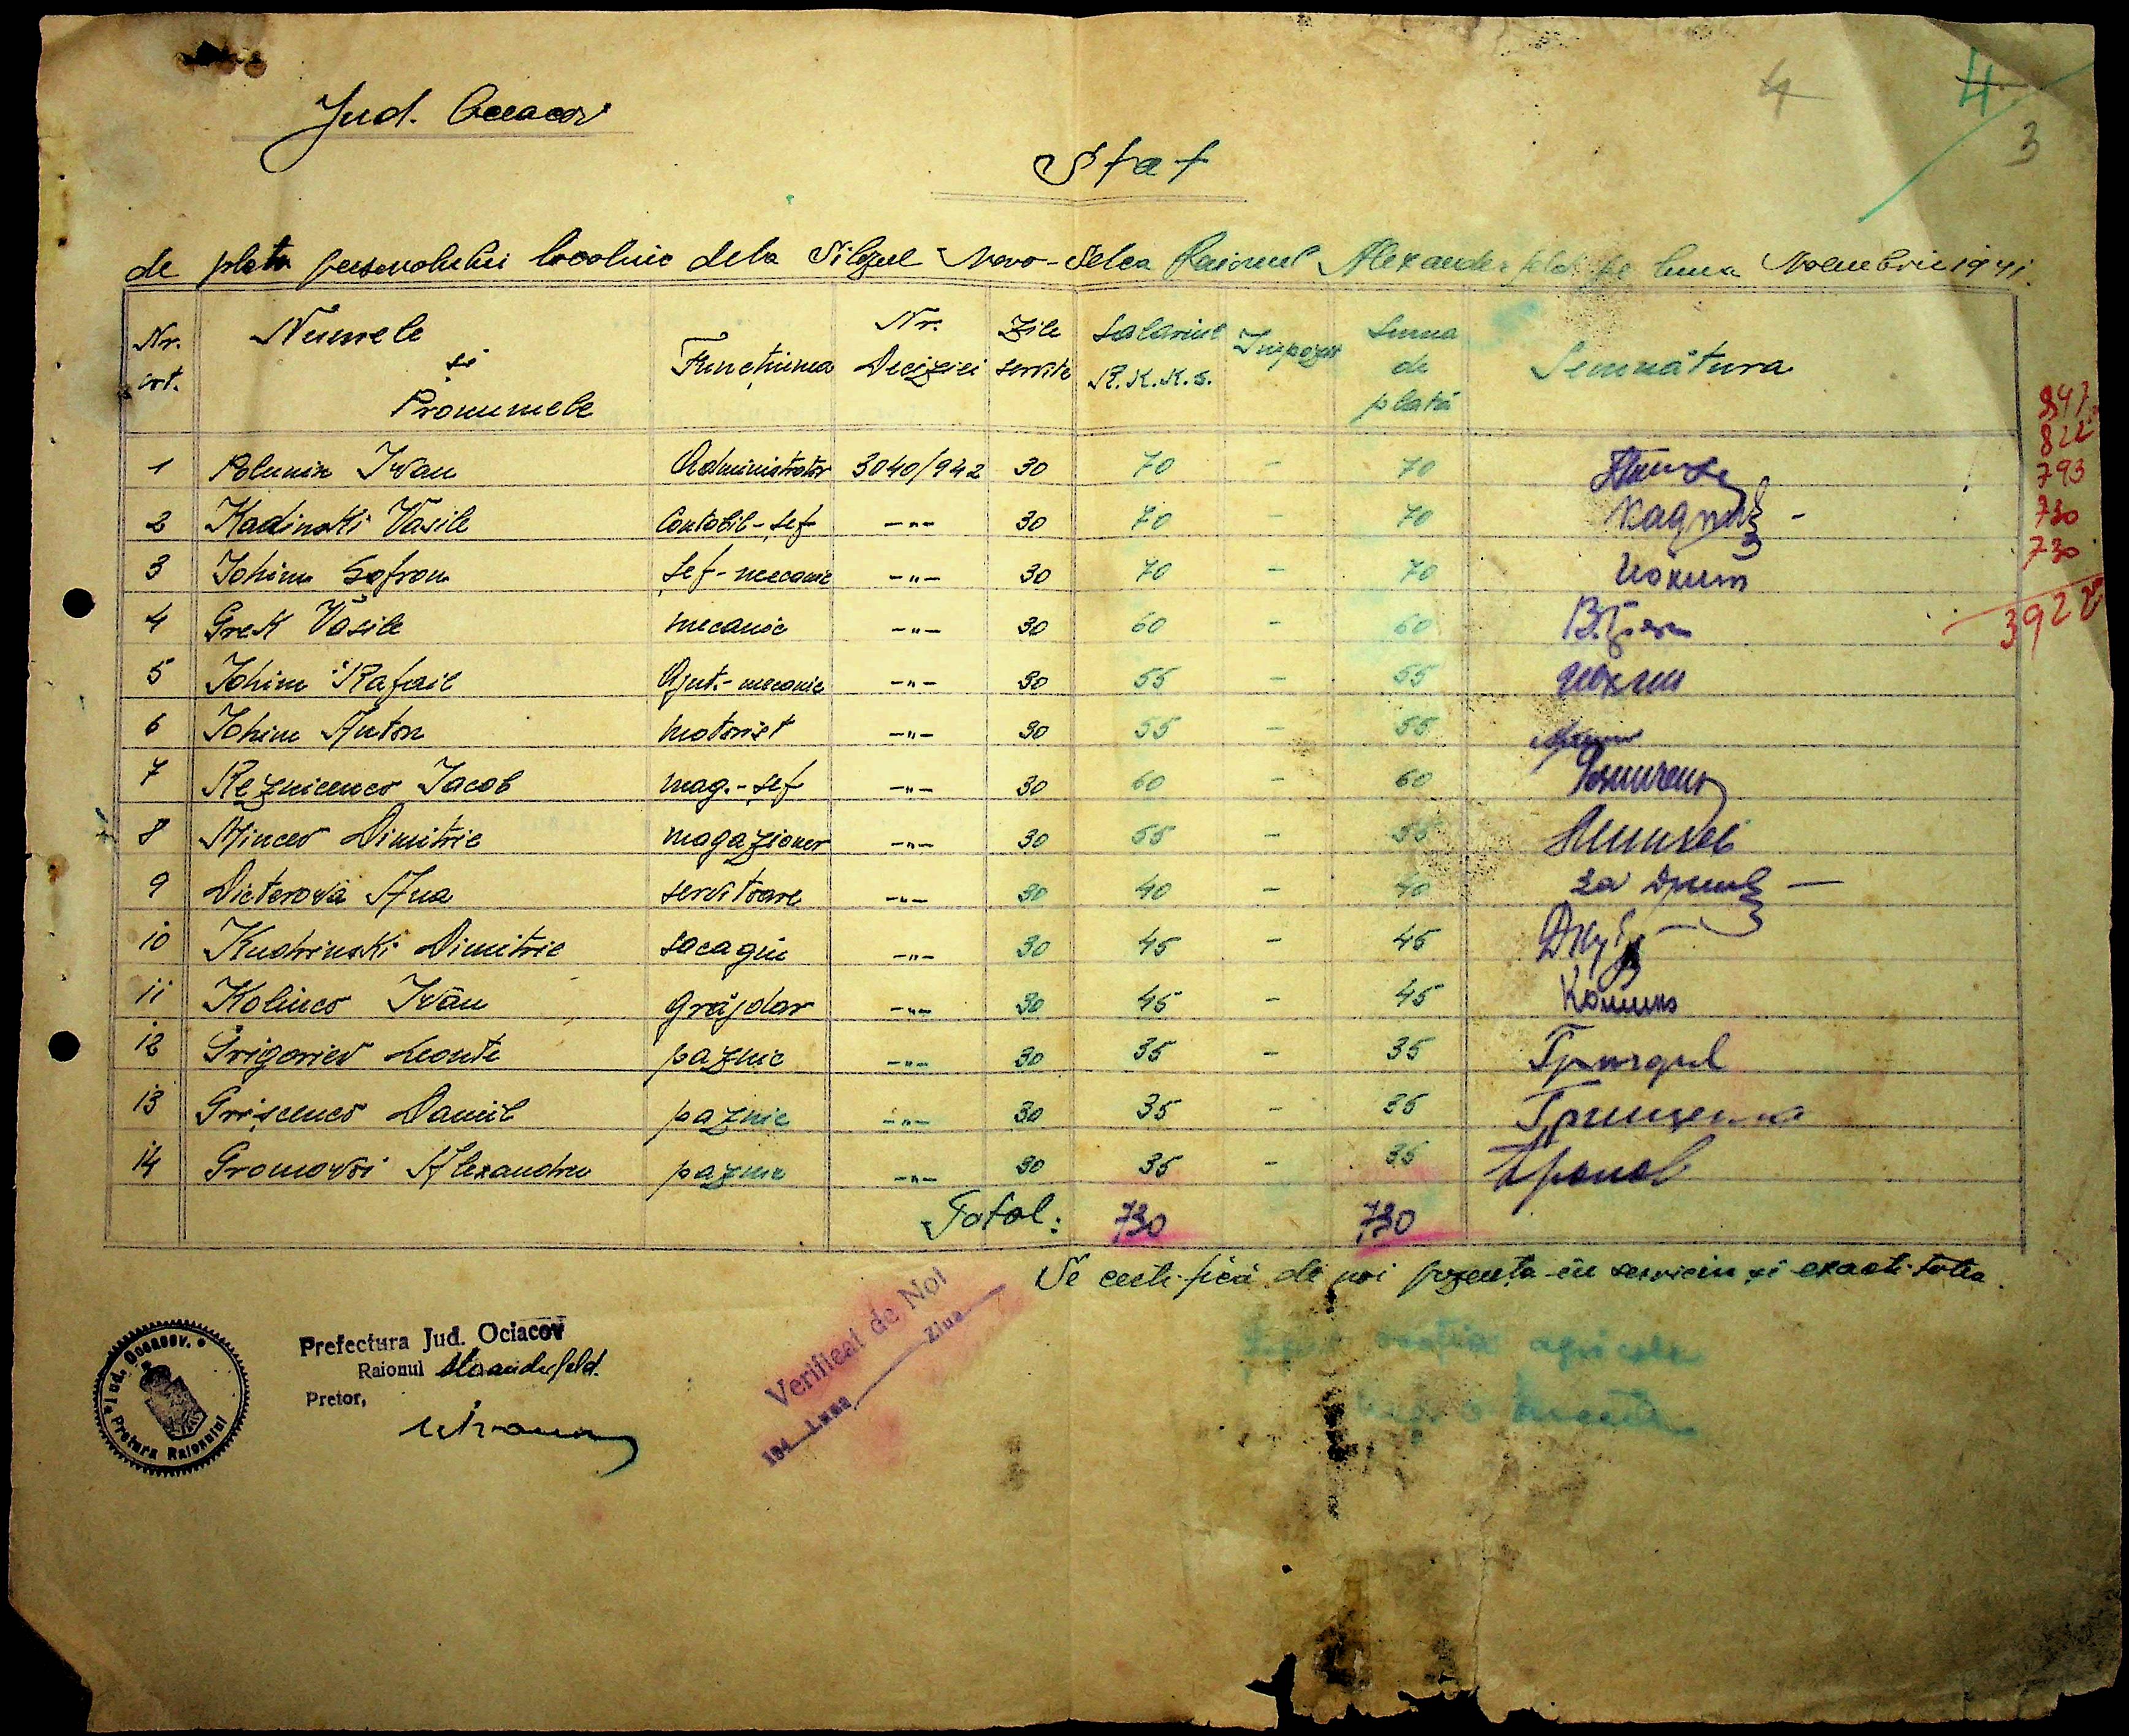 Jud. Oceacov
4
4
3
Stat
de plata personalului localnic dela Silozul Novo-Selca Raionul Alexanderfeld pe luna Noembrie 1941.
Nr. crt. Numele și Pronumele Funcțiunea Nr. Deciziei Zile servite Salariul R.K.K.S. Impozit Suma de plată Semnătura
1 Polunin Ivan Administrator 3040/942 30 70 - 70
2 Kadinski Vasile Contabil-șef -"- 30 70 - 70
3 Iohim Sofron șef-mecanic -"- 30 70 - 70 Иохим
4 Grek Vasile mecanic -"- 30 60 - 60
5 Iohim Rafail Ajut.-mecanic -"- 30 55 - 55 Иохим
6 Iohim Anton motorist -"- 30 55 - 55
7 Reznicenco Iacob mag.-șef -"- 30 60 - 60
8 Mincev Dimitrie magazioner -"- 30 55 - 55
9 Victorova Ana servitoare -"- 30 40 - 40
10 Kudrinski Dimitrie sacagiu -"- 30 45 - 45
11 Kolinco Ivan grăjdar -"- 30 45 - 45
12 Grigoriev Leonte paznic -"- 30 35 - 35
13 Grișcenco Daniil paznic -"- 30 35 - 35 Грищенко
14 Gromovoi Alexandru paznic -"- 30 35 - 35
Total: 730 730
847
822
793
730
730
3922
Se certifică de noi prezența în serviciu și exactitatea.
Prefectura Jud. Ociacov
Raionul Alexanderfeld.
Pretor,
Jud. Oceacov.
Pretura Raionului
Verificat de Noi
194 Luna Ziua
agricola